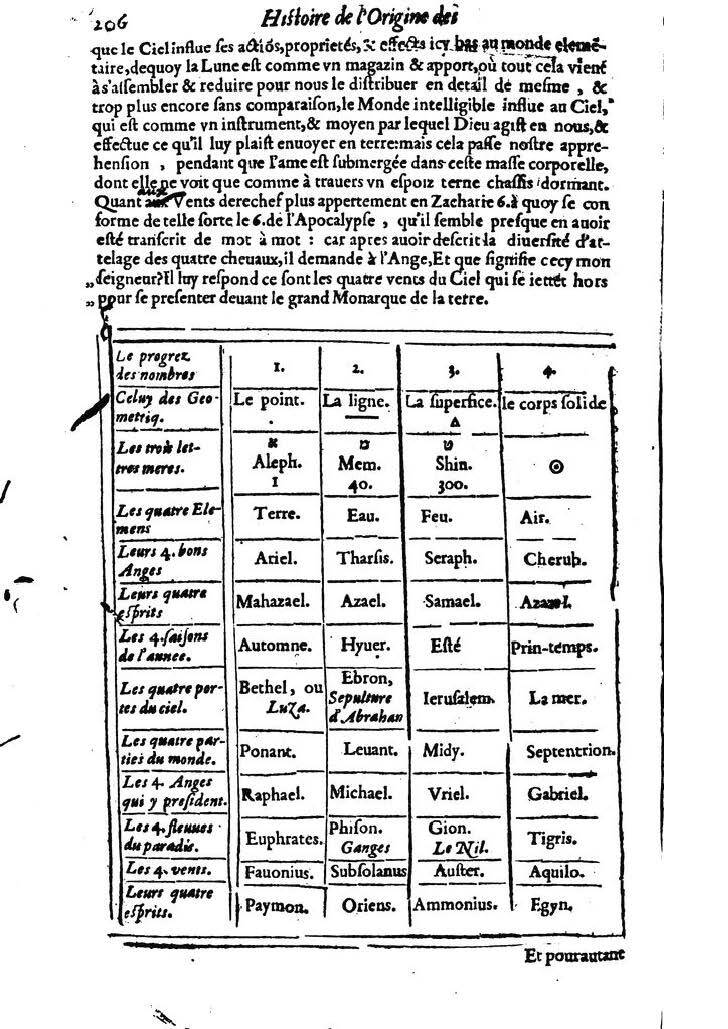 206 Histoire de l'Origine des
que le Ciel influe ſes actiõs, proprietés, & effects icy bas au monde elemē-
taire, dequoy la Lune eſt comme vn magazin & apport, où tout cela vient
à s'aſſembler & reduire pour nous le diſtribuer en detail de meſme, &
trop plus encore ſans comparaiſon, le Monde intelligible influe au Ciel,
qui eſt comme vn inſtrument, & moyen par lequel Dieu agiſt en nous, &
effectue ce qu'il luy plaiſt enuoyer en terre: mais cela paſſe noſtre appre-
henſion, pendant que l'ame eſt ſubmergée dans ceſte maſſe corporelle,
dont elle ne voit que comme à trauers vn eſpoiz terne chaſſis dormant.
Quant aux Vents derechef plus appertement en Zacharie 6. à quoy ſe con
forme de telle ſorte le 6. de l'Apocalypſe, qu'il ſemble preſque en auoir
eſté tranſcrit de mot à mot: car apres auoir deſcrit la diuerſité d'at-
telage des quatre cheuaux, il demande à l'Ange, Et que ſignifie cecy mon
„ ſeigneur? Il luy reſpond ce ſont les quatre vents du Ciel qui ſe iettēt hors
„ pour ſe preſenter deuant le grand Monarque de la terre.
Le progrez des nombres 1. 2. 3. 4.
Celuy des Geo-
metriq. Le point. . La ligne. La ſuperfice. △ le corps ſolide
Les trois let-
tres meres. א Aleph. 1 מ Mem. 40. ש Shin. 300. ⊙
Les quatre Ele-
mens Terre. Eau. Feu. Air.
Leurs 4. bons
Anges Ariel. Tharſis. Seraph. Cherub.
Leurs quatre
eſprits Mahazael. Azael. Samael. Azazel.
Les 4. ſaiſons
de l'annee. Automne. Hyuer. Eſté Prin-temps.
Les quatre por-
tes du ciel. Bethel, ou Luza. Ebron, Sepulture d'Abrahan Ieruſalem. La mer.
Les quatre par-
ties du monde. Ponant. Leuant. Midy. Septentrion.
Les 4. Anges
qui y preſident. Raphael. Michael. Vriel. Gabriel.
Les 4. fleuues
du paradis. Euphrates. Phiſon. Ganges Gion. Le Nil. Tigris.
Les 4. vents. Fauonius. Subſolanus Auſter. Aquilo.
Leurs quatre
eſprits. Paymon. Oriens. Ammonius. Egyn.
Et pourautant